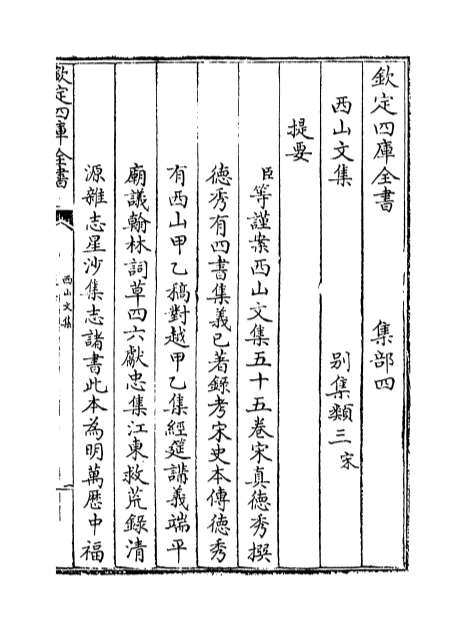 欽定四庫全書　集部四
西山文集　别集類三宋
提要
臣等謹案西山文集五十五卷宋真徳秀撰
徳秀有四書集義已著錄考宋史本傳徳秀
有西山甲乙稿對越甲乙集經筵講義端平
廟議翰林詞草四六獻忠集江東救荒錄清
源雜志星沙集志諸書此本為明萬厯中福
欽定四庫全書
西山文集